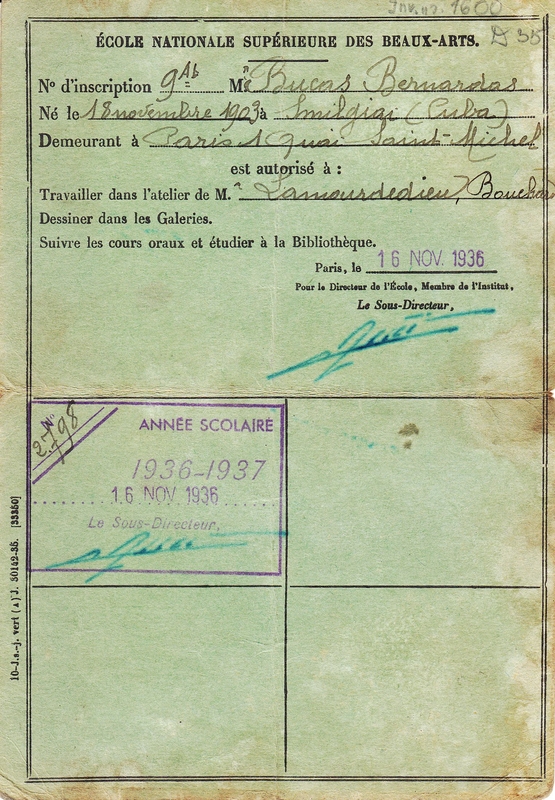 Inv. nr. 1600
D 35
ÉCOLE NATIONALE SUPÉRIEURE DES BEAUX-ARTS.
Nº d'inscription 9 Ab M Bucas Bernardas
Né le 18 novembre 1903 à Smilgiai (Cuba)
Demeurant à Paris 1 Quai Saint-Michel
est autorisé à :
Travailler dans l'atelier de M. Lamourdedieu, Bouchard
Dessiner dans les Galeries.
Suivre les cours oraux et étudier à la Bibliothèque.
Paris, le 16 NOV. 1936
Pour le Directeur de l'École, Membre de l'Institut,
Le Sous-Directeur,
Nº 2798
ANNÉE SCOLAIRE
1936-1937
16 NOV 1936
Le Sous-Directeur,
10-J.s.-j. vert (A) J. 30142-35. [33350]